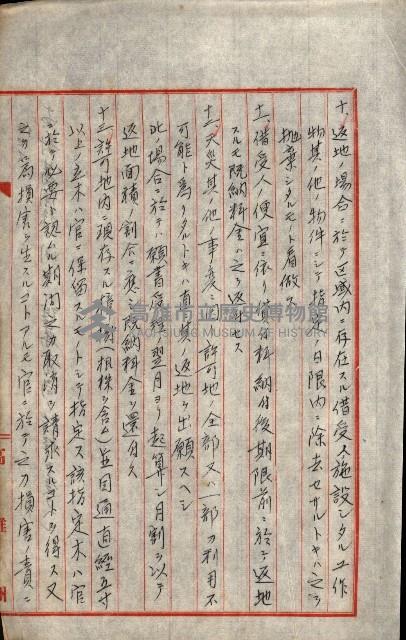 十、返地ノ場合ニ於テ区域内ニ存在スル借受人施設シタル工作
物其ノ他ノ物件ニシテ指定ノ日限内ニ除去セサルトキハ之ヲ
抛棄シタルモノト看做ス
十一、借受人ノ便宜ニ依リ貸付料納付後期限前ニ於テ返地
スルモ既納料金ハ之ヲ返還セス
十二、天災其ノ他ノ事変ニ因リ許可地ノ全部又ハ一部ヲ利用不
可能ト為リタルトキハ直ニ其ノ返地ヲ出願スヘシ
此ノ場合ニ於テハ願書受理ノ翌月ヨリ起算シ月割ヲ以テ
返地面積ノ割合ニ応シ既納料金ヲ還付ス
十三、許可地内ニ現存スル樟樹(根株ヲ含ム)並目通直経五寸
以上ノ立木ハ官ニ保留スルモノトシテ指定ス該指定木ハ官
ニ於テ必要ト認ムル期間之カ取消ヲ請求スルコトヲ得ス又
之カ為損害ヲ生スルコトアルモ官ニ於テ之カ損害ノ責ニ
高雄州
高雄市立歷史博物館
KAOHSIUNG MUSEUM OF HISTORY